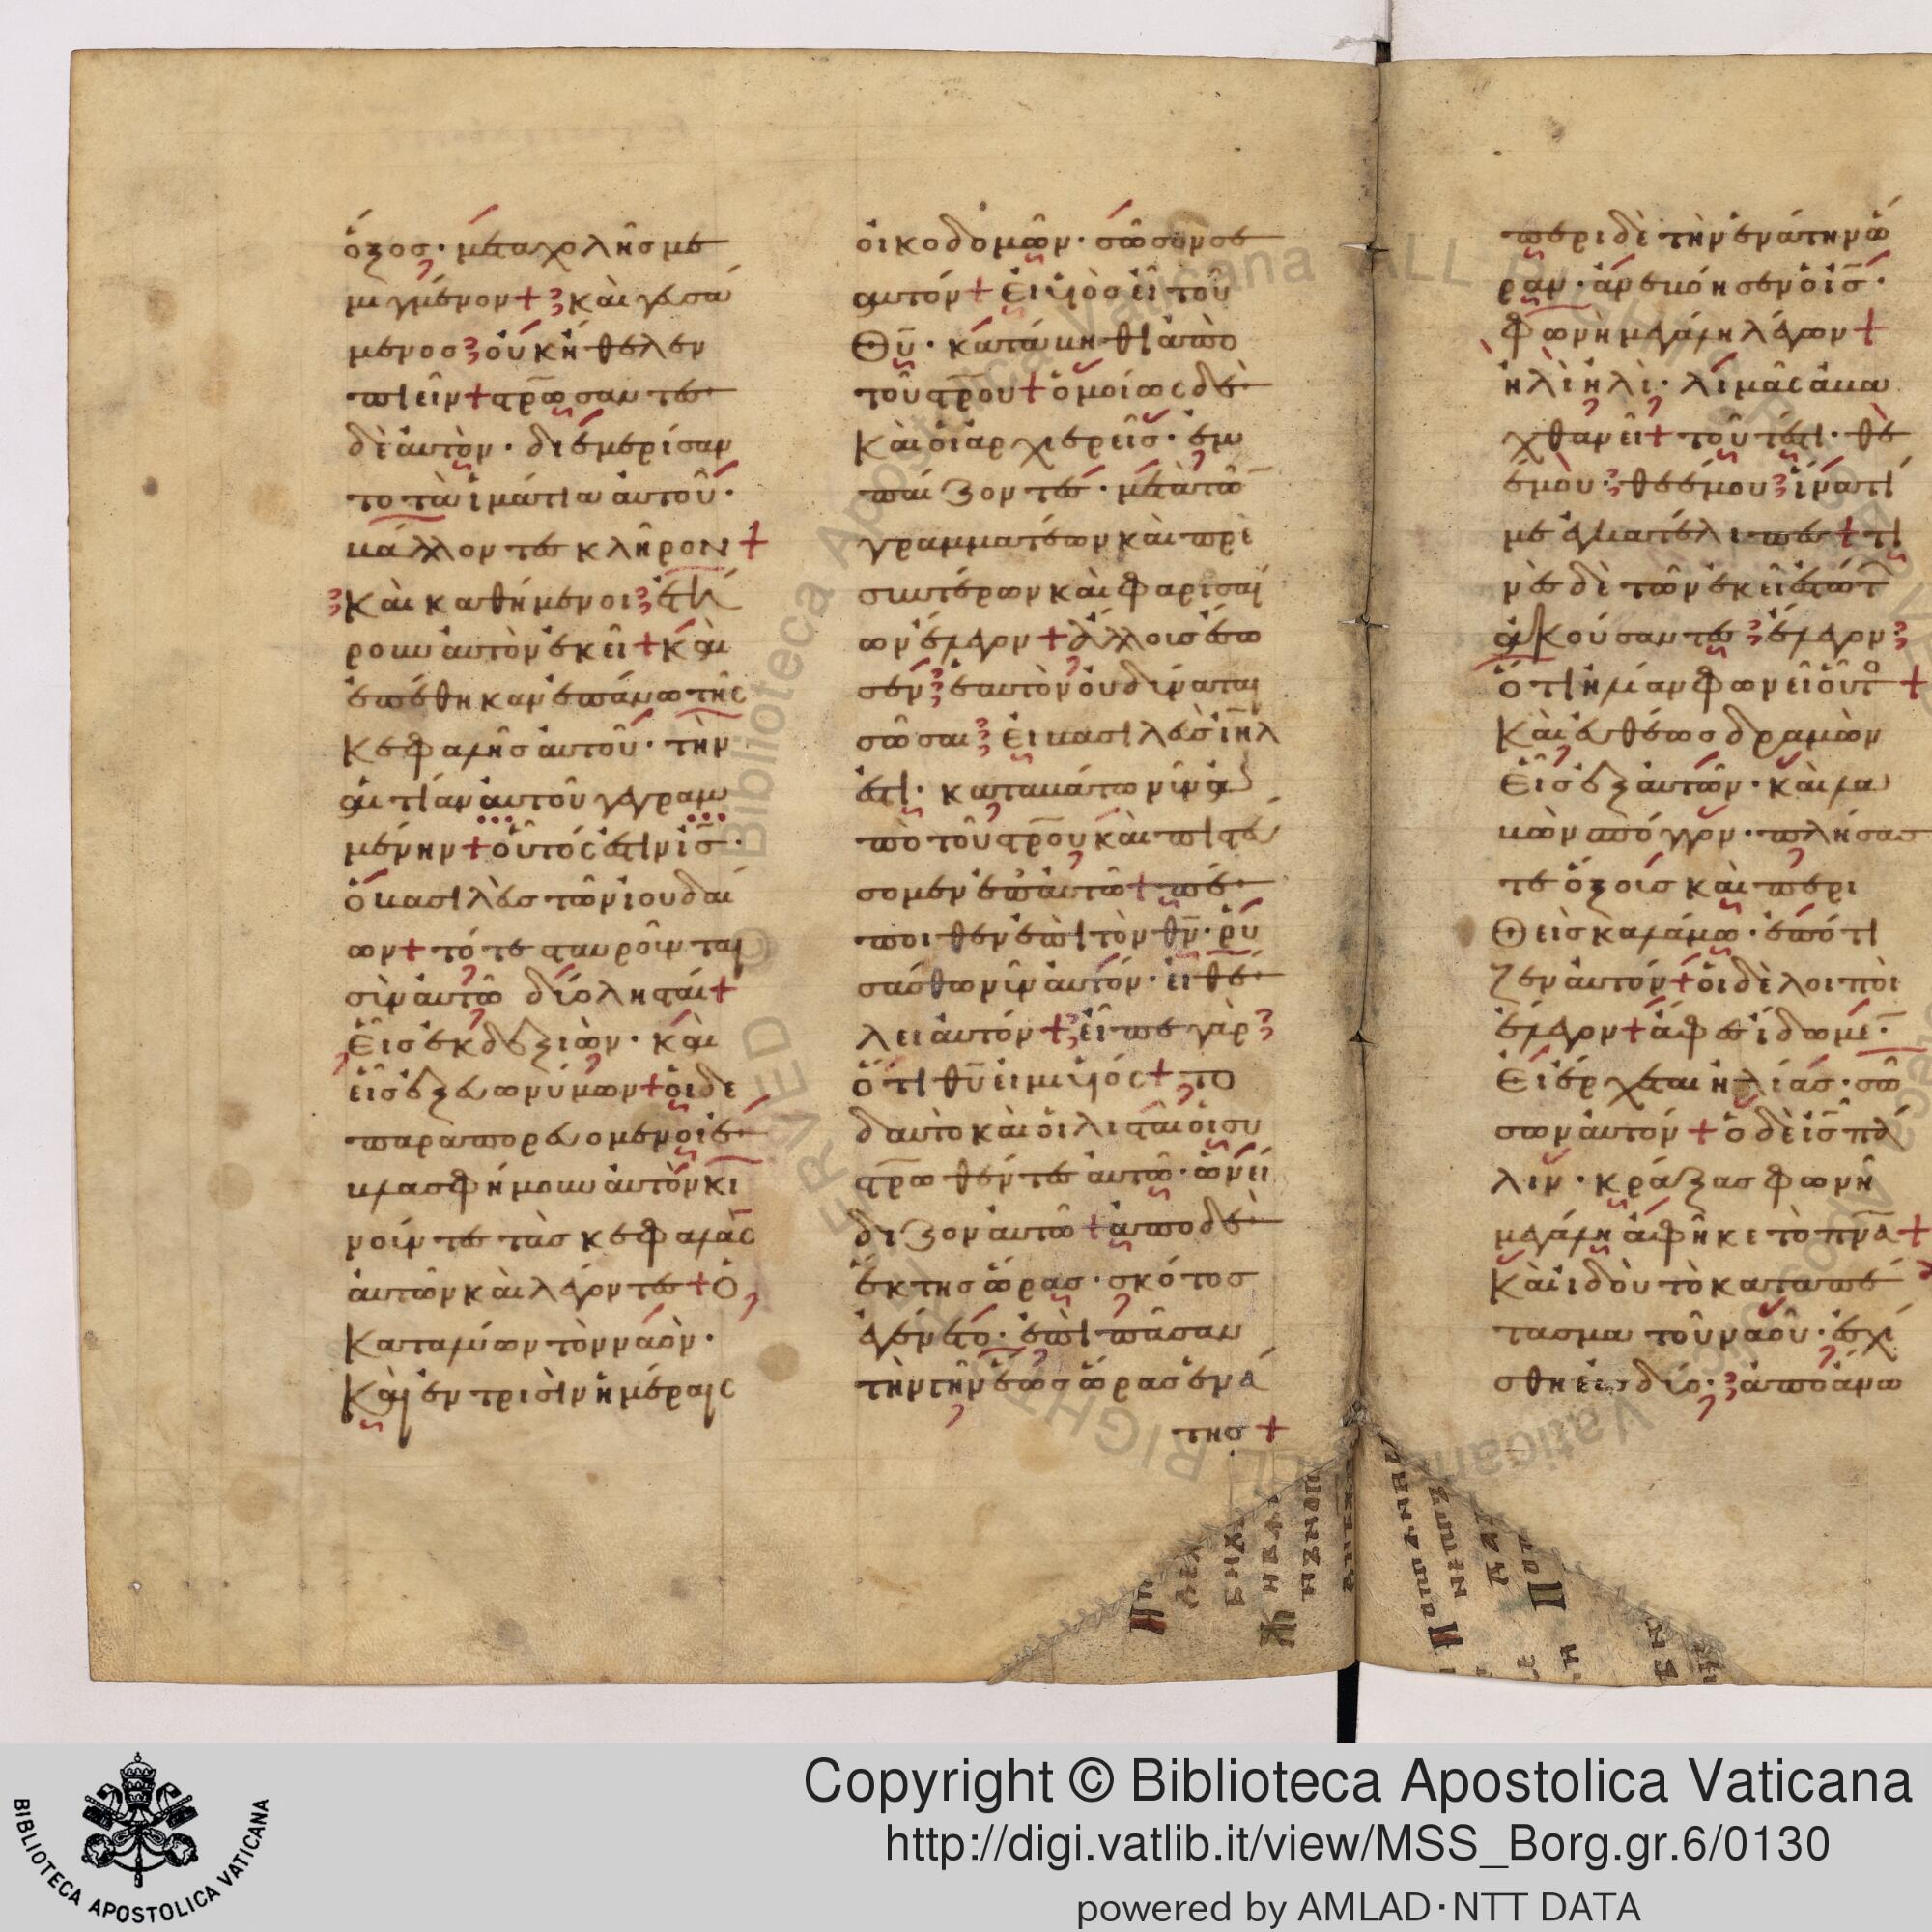 ὄξος· μετὰ χολῆς με
μιγμένον + καὶ γευσά
μενος οὐκ ἤθελεν
πιεῖν + στρώσαντες
δὲ αὐτὸν· διεμερίσαν
το τὰ ἱμάτια αὐτοῦ·
βάλλοντες κλῆρον +
Καὶ καθήμενοι ἐτή
ρουν αὐτὸν ἐκεῖ + καὶ
ἐπέθηκαν ἐπάνω τῆς
κεφαλῆς αὐτοῦ· τὴν
αἰτίαν αὐτοῦ γεγραμ
μένην + οὗτός ἐστιν ις·
ὁ βασιλεὺς τῶν ἰουδαί
ων + τότε σταυροῦνται
σὺν αὐτῷ δύο λησταί +
εἷς ἐκ δεξιῶν· καὶ
εἷς ἐξ εὐωνύμων + οἱ δε
παραπορευόμενοι ἐ
βλασφήμουν αὐτὸν κι
νοῦντες τὰς κεφαλὰς
αὐτῶν καὶ λέγοντες + ὁ
καταλύων τὸν ναὸν·
Καὶ ἐν τρισὶν ἡμέραις
οἰκοδομῶν· σῶσον σε
αυτόν + εἰ υἱὸς εἶ τοῦ
θυ· κατάβηθι ἀπὸ
τοῦ στρου + ὁμοίως δὲ
καὶ οἱ ἀρχιερεῖς· ἐμ
παίζοντες· μετὰ τῶ
γραμματέων καὶ πρε
σβυτέρων καὶ φαρισαί
ων ἔλεγον + ἄλλους ἔσω
σεν ἑαυτὸν οὐ δύναται
σῶσαι εἰ βασιλεὺς ιηλ
ἐστι· καταβάτω νῦν ἀ
πὸ τοῦ στρου καὶ πιστεύ
σομεν ἐπ αὐτῷ + πέ
ποιθεν ἐπὶ τὸν θν· ῥυ
σάσθω νῦν αὐτόν· εἰ θέ
λει αὐτόν + εἶπε γὰρ
ὅτι θυ εἰμι υἱός + το
δ αυτὸ καὶ οἱ λησταὶ οἱ συ
στρωθέντες αὐτῷ· ὠνεί
διζον αὐτῷ + ἀπο δὲ
ἕκτης ὥρας· σκότος
ἐγένετο· ἐπὶ πᾶσαν
τὴν γῆν ἕως ὥρας ἐνά
της +
περι δὲ τὴν ἐνάτην ὥ
ραν· ἀνεβόησεν ὁ ις·
φωνῇ μεγάλῃ λέγων +
ἠλὶ ἠλὶ· λιμᾶ σαβα
χθανεί + τοῦτέστι· θε
ἐμου· θεέ μου ἱνατί
με ἐγκατέλιπες + τι
νὲς δὲ τῶν ἐκεῖ ἑστώτ
ἀκούσαντες ἔλεγον
ὅτι ἠλίαν φωνεῖ οὗτο +
Καὶ εὐθέως δραμὼν
εἷς ἐξ αὐτῶν· καὶ λα
βὼν σπόγγον· πλήσας
τε ὄξους καὶ περι
θεὶς καλάμῳ· ἐπότι
ζεν αὐτόν + οἱ δὲ λοιποὶ
ἔλεγον + ἄφες ἴδωμε·
εἰ ἔρχεται ἠλίας· σώ
σων αὐτόν + ὁ δὲ ις πά
λιν· κράξας φωνῇ
μεγάλῃ ἀφῆκε τὸ πνα +
Καὶ ἰδοὺ τὸ καταπέ
τασμα τοῦ ναοῦ· ἐσχί
σθη εἰς δύο· ἀπὸ ἄνω
Copyright © Biblioteca Apostolica Vaticana
http://digi.vatlib.it/view/MSS_Borg.gr.6/0130
powered by AMLAD·NTT DATA
BIBLIOTECA APOSTOLICA VATICANA